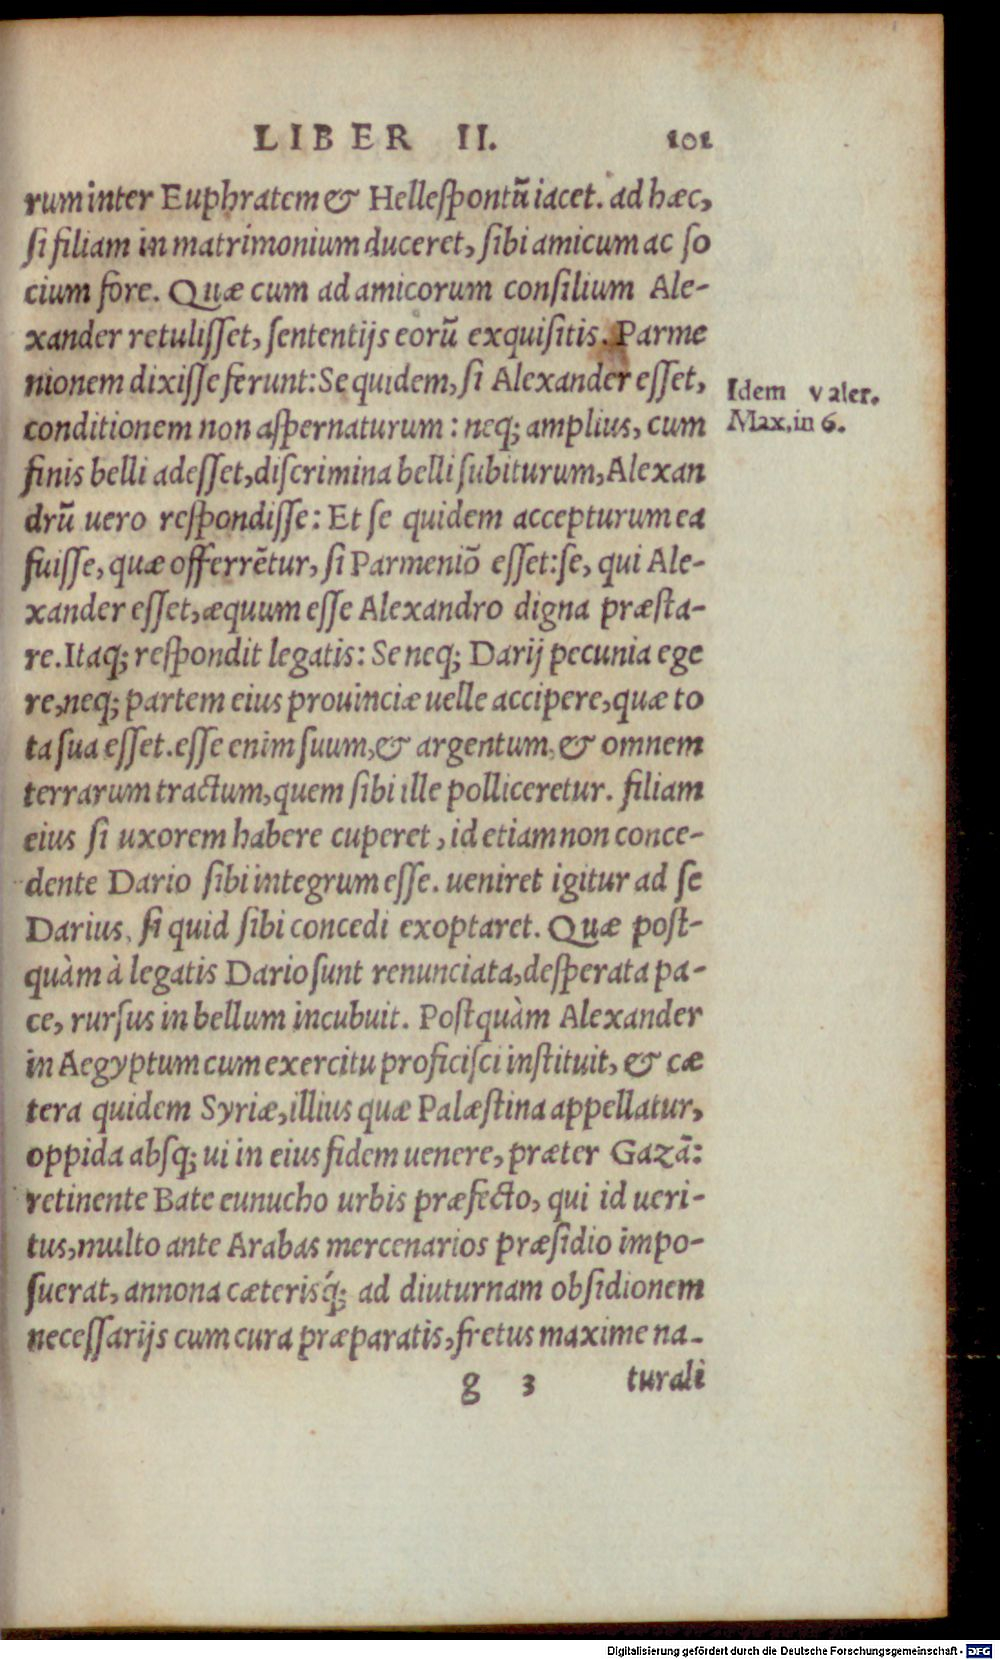 LIBER II. 101
rum inter Euphratem & Hellespontū iacet. ad hæc,
si filiam in matrimonium duceret, sibi amicum ac so
cium fore. Quæ cum ad amicorum consilium Ale-
xander retulisset, sententijs eorū exquisitis. Parme
nionem dixisse ferunt: Se quidem, si Alexander esset,
conditionem non aspernaturum: neq; amplius, cum
finis belli adesset, discrimina belli subiturum, Alexan
drū uero respondisse: Et se quidem accepturum ea
fuisse, quæ offerrētur, si Parmeniō esset: se, qui Ale-
xander esset, æquum esse Alexandro digna præsta-
re. Itaq; respondit legatis: Se neq; Darij pecunia ege
re, neq; partem eius prouinciæ uelle accipere, quæ to
ta sua esset. esse enim suum, & argentum, & omnem
terrarum tractum, quem sibi ille polliceretur. filiam
eius si uxorem habere cuperet, id etiam non conce-
dente Dario sibi integrum esse. ueniret igitur ad se
Darius, si quid sibi concedi exoptaret. Quæ post-
quàm à legatis Dario sunt renunciata, desperata pa-
ce, rursus in bellum incubuit. Postquàm Alexander
in Aegyptum cum exercitu proficisci instituit, & cæ
tera quidem Syriæ, illius quæ Palæstina appellatur,
oppida absq; ui in eius fidem uenere, præter Gazā:
retinente Bate eunucho urbis præfecto, qui id ueri-
tus, multo ante Arabas mercenarios præsidio impo-
suerat, annona cæterisq́; ad diuturnam obsidionem
necessarijs cum cura præparatis, fretus maxime na-
g 3 turali
Idem valer.
Max. in 6.
Digitalisierung gefördert durch die Deutsche Forschungsgemeinschaft - DFG